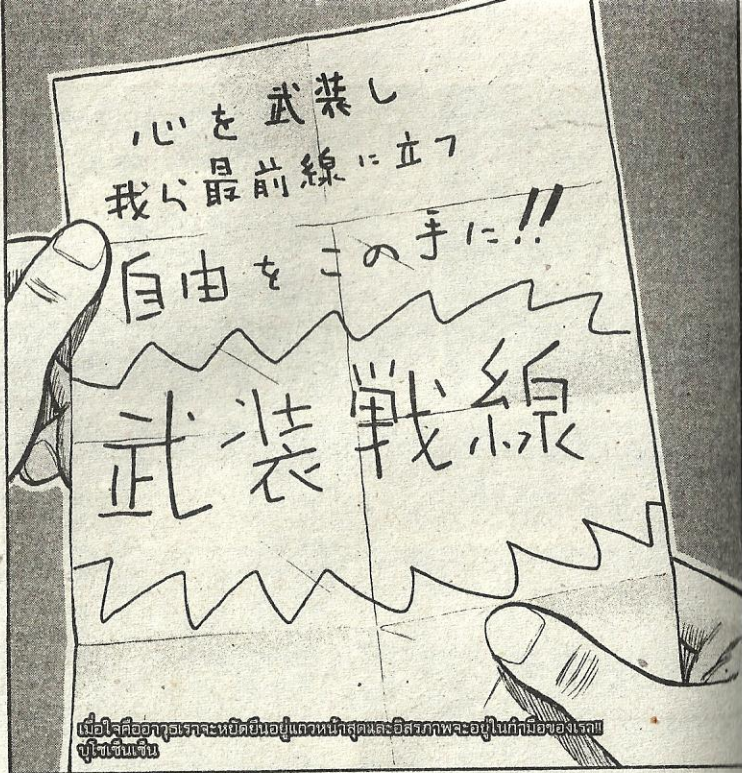 心を武装し
我ら最前線に立つ
自由をこの手に!!
武装戦線
เมื่อใจคืออาวุธเราจะหยัดยืนอยู่แถวหน้าสุดและอิสรภาพจะอยู่ในกำมือของเรา!!
บุโซเซ็นเซ็น